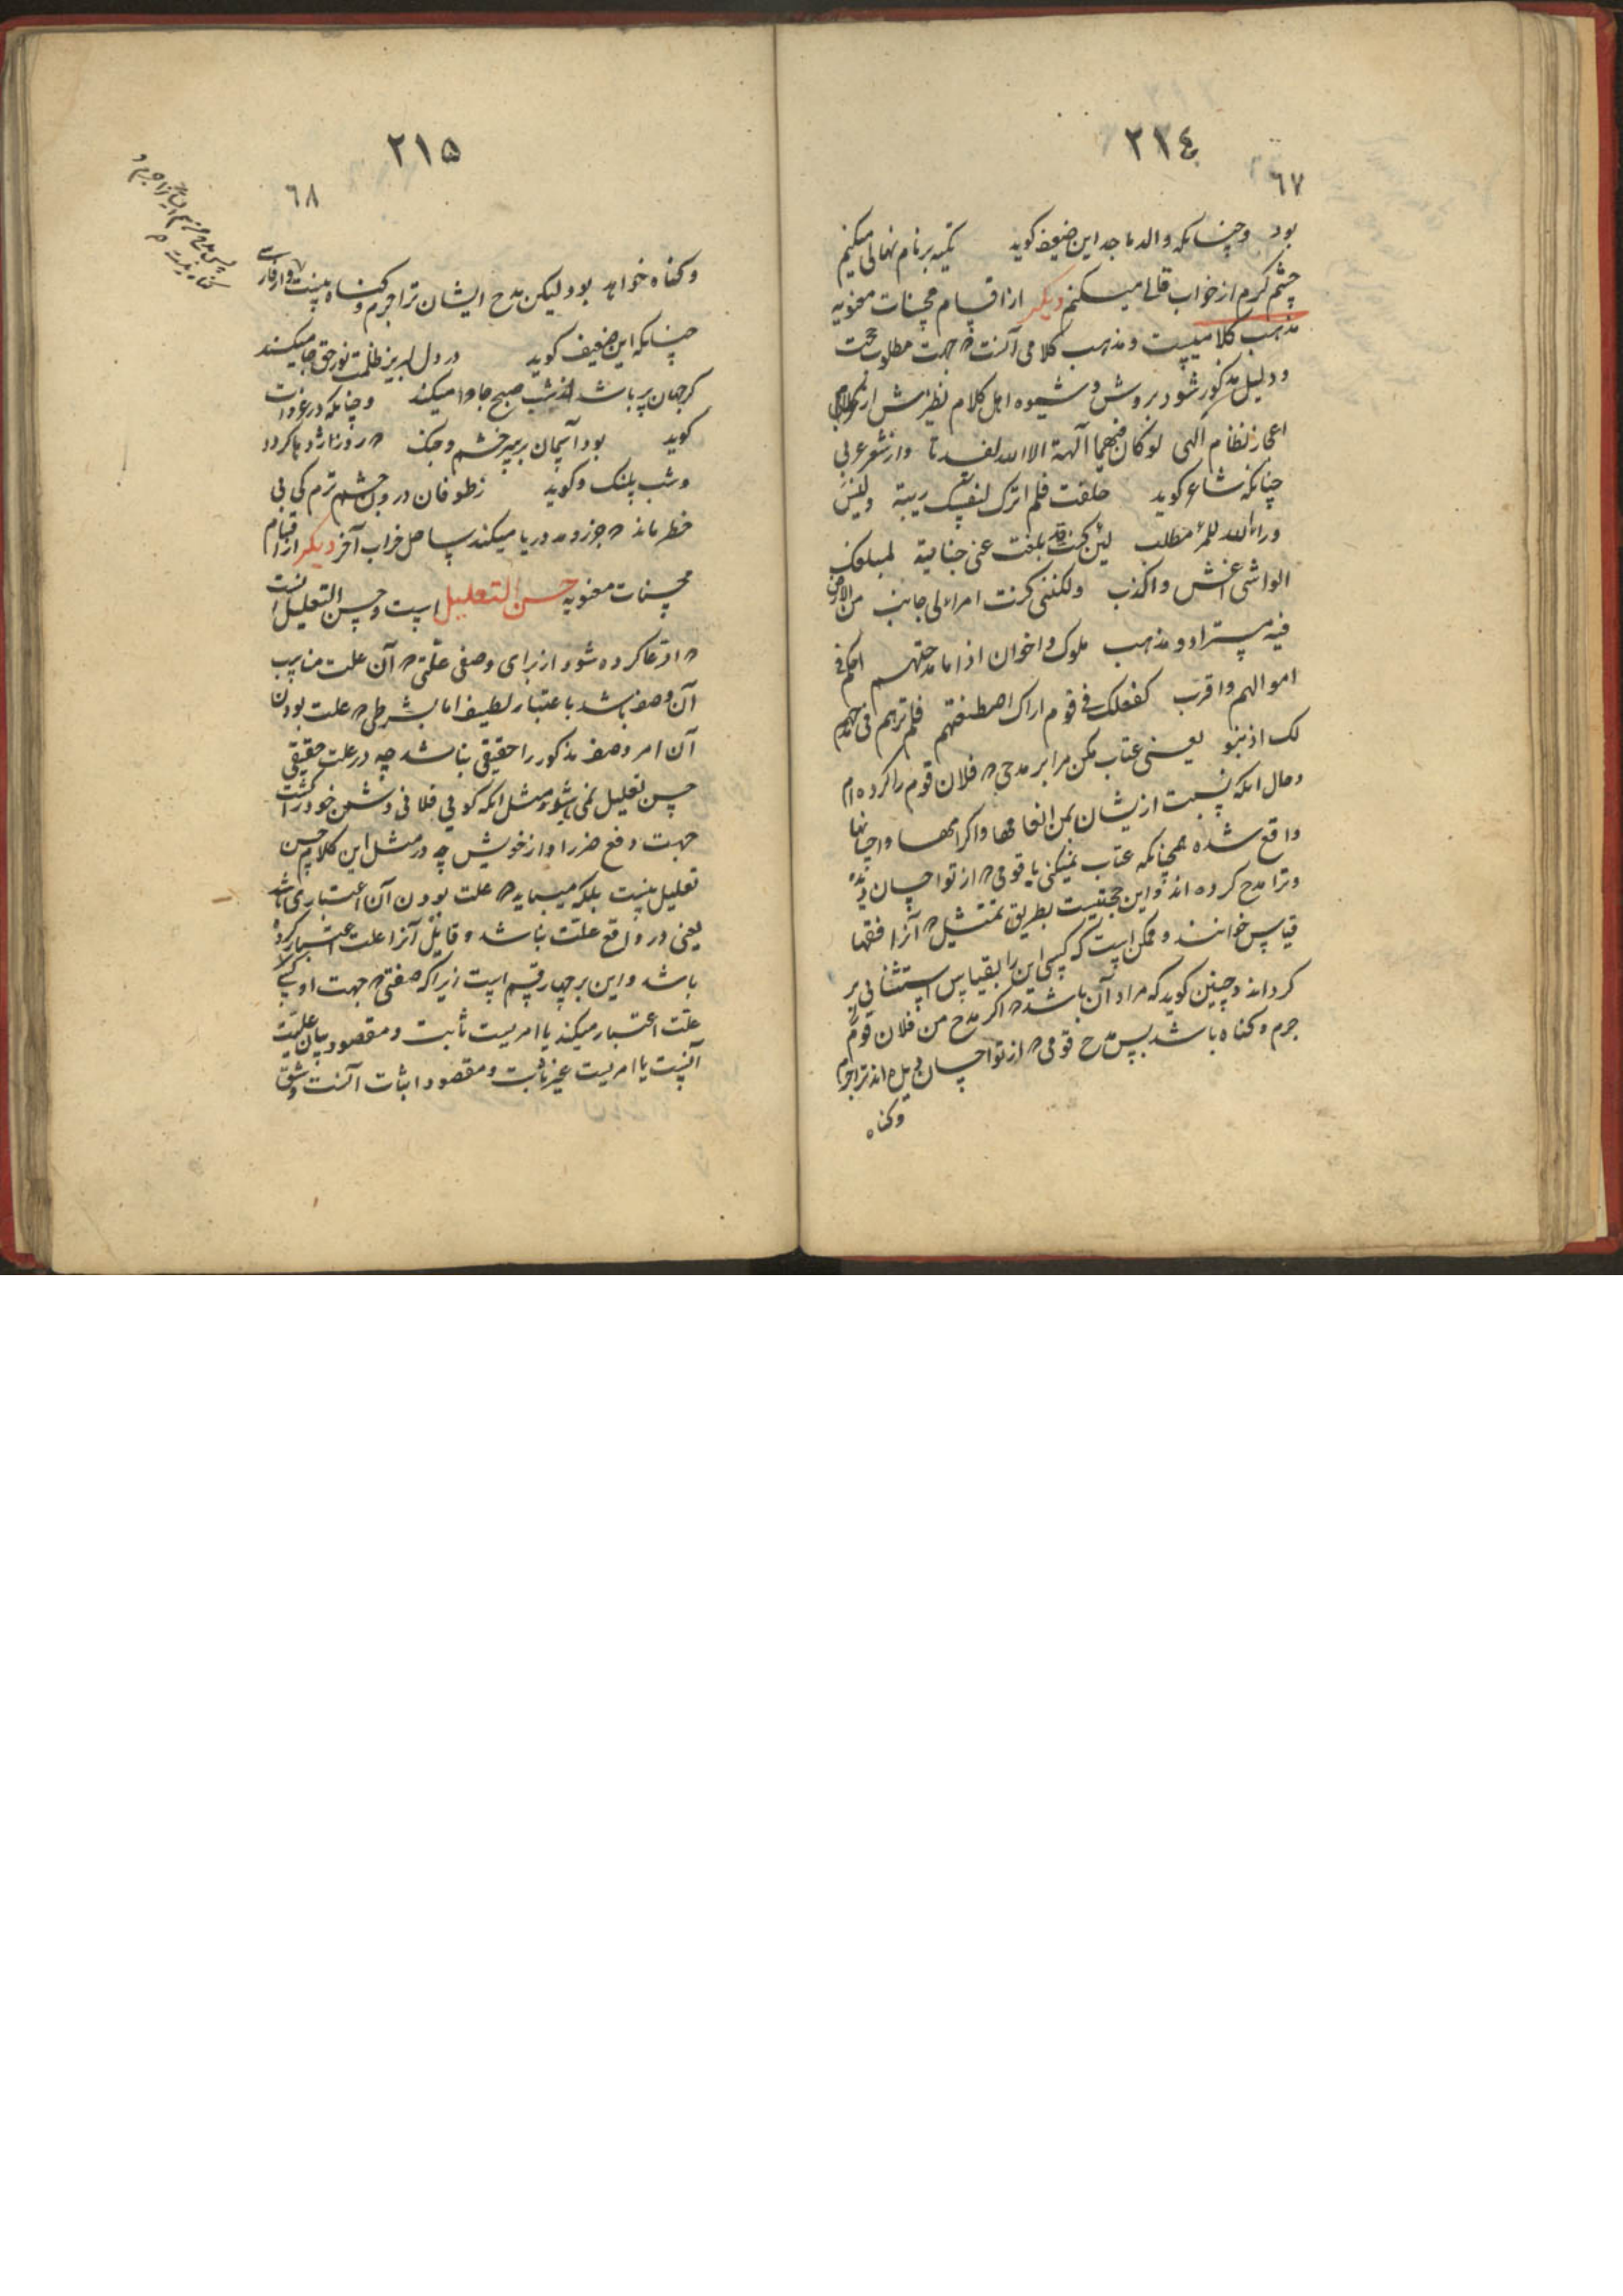 ٢١٤
٦٧
بود وچنانکه والد ماجد این ضعیف کوید تکیه بر نام نهالی میکنم
چشم کرم از خواب قالی میکنم دیکر از اقسام محسنات معنویه
مذهب کلامیست ومذهب کلامی آنست که جهت مطلوب حجت
ودلیل مذکور شود بروش وشیوه اهل کلام نظیرش از کلام
اعجاز نظام الهی لو کان فیهما آلهة الا الله لفسدتا واز شعر عربی
چنانکه شاعر کوید حلفت فلم اترک لنفسک ریبة ولیس
وراء الله للمرء مطلب لئن کنت قد بلغت عنی جنایة لمبلغک
الواشی اغش واکذب ولکننی کنت امرء لی جانب من الارض
فیه مستراد ومذهب ملوک واخوان اذا ما مدحتهم احکم فی
اموالهم واقرب کفعلک فی قوم اراک اصطنعتهم فلم ترهم فی مدحهم
لک اذنبو یعنی عتاب مکن مرا بر مدحی که فلان قوم را کرده ام
وحال آنکه نسبت ازیشان بمن انعامها واکرامها واحسانها
واقع شده همچنانکه عتاب نمیکنی با قومی که از تو احسان دیده
وترا مدح کرده اند واین حجتیست بطریق تمثیل که آنرا فقها
قیاس خوانند وممکن است که کسی این را بقیاس استثنائی بر
کرداند وچنین کوید که مراد آن باشد که اکر مدح من فلان قوم را
جرم وکناه باشد پس مدح قومی که از تو احسان دیده اند ترا جرم
وکناه
٢١٥
٦٨
وکناه خواهد بود لیکن مدح ایشان ترا جرم وکناه نیست واز فارسی
چنانکه این ضعیف کوید در دل لبریز ظلمت نور حق جا میکند
کر جهان پر باشد از شب صبح جا وا میکند وچنانکه در غزوات
کوید بود آسمان بر سر خشم وجنک که روز اژدها کردد
وشب پلنک وکوید ز طوفان در دل چشم ترم کی بی
خطر ماند که جزر ومد دریا میکند ساحل خراب آخر دیکر از اقسام
محسنات معنویه حسن التعلیل است وحسن التعلیل آنست
که ادعا کرده شود از برای وصفی علتی که آن علت مناسب
آن وصف باشد باعتبار لطیف اما بشرطی که علت بودن
آن امر وصف مذکور را حقیقی نباشد چه در علت حقیقی
حسن تعلیل نمی باشد مثل آنکه کویی فلانی دشمن خود را کشت
جهت دفع ضرر او از خویش چه در مثل این کلام حسن
تعلیل نیست بلکه میباید که علت بودن آن اعتباری باشد
یعنی در واقع علت نباشد وقایل آنرا علت اعتبار کرده
باشد واین بر چهار قسم است زیرا که صفتی که جهت او کسی
علت اعتبار میکند یا امریست ثابت ومقصود بیان علیت
آنست یا امریست غیر ثابت ومقصود اثبات آنست وشق